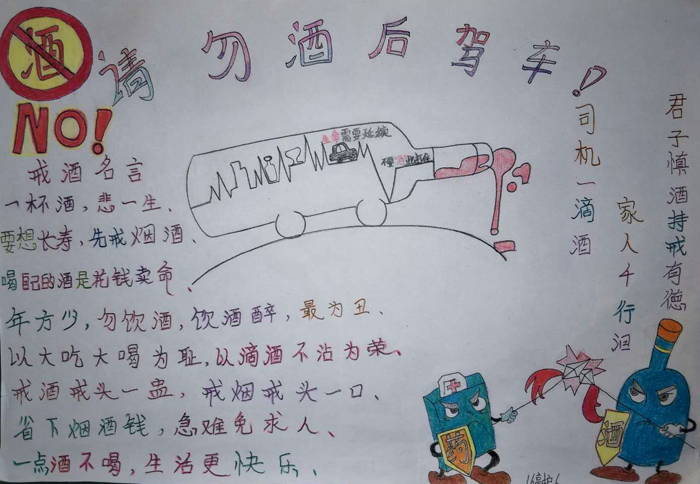 酒
NO!
请勿酒后驾车!
戒酒名言
一杯酒,悲一生、
要想长寿,先戒烟酒、
喝自己的酒是花钱卖命、
年方少,勿饮酒,饮酒醉,最为丑、
以大吃大喝为耻,以滴酒不沾为荣、
戒酒戒头一盅,戒烟戒头一口、
省下烟酒钱,急难免求人、
一点酒不喝,生活更快乐、
生命需要延续
司机一滴酒
家人千行泪
君子慎酒持戒有德
药
酒